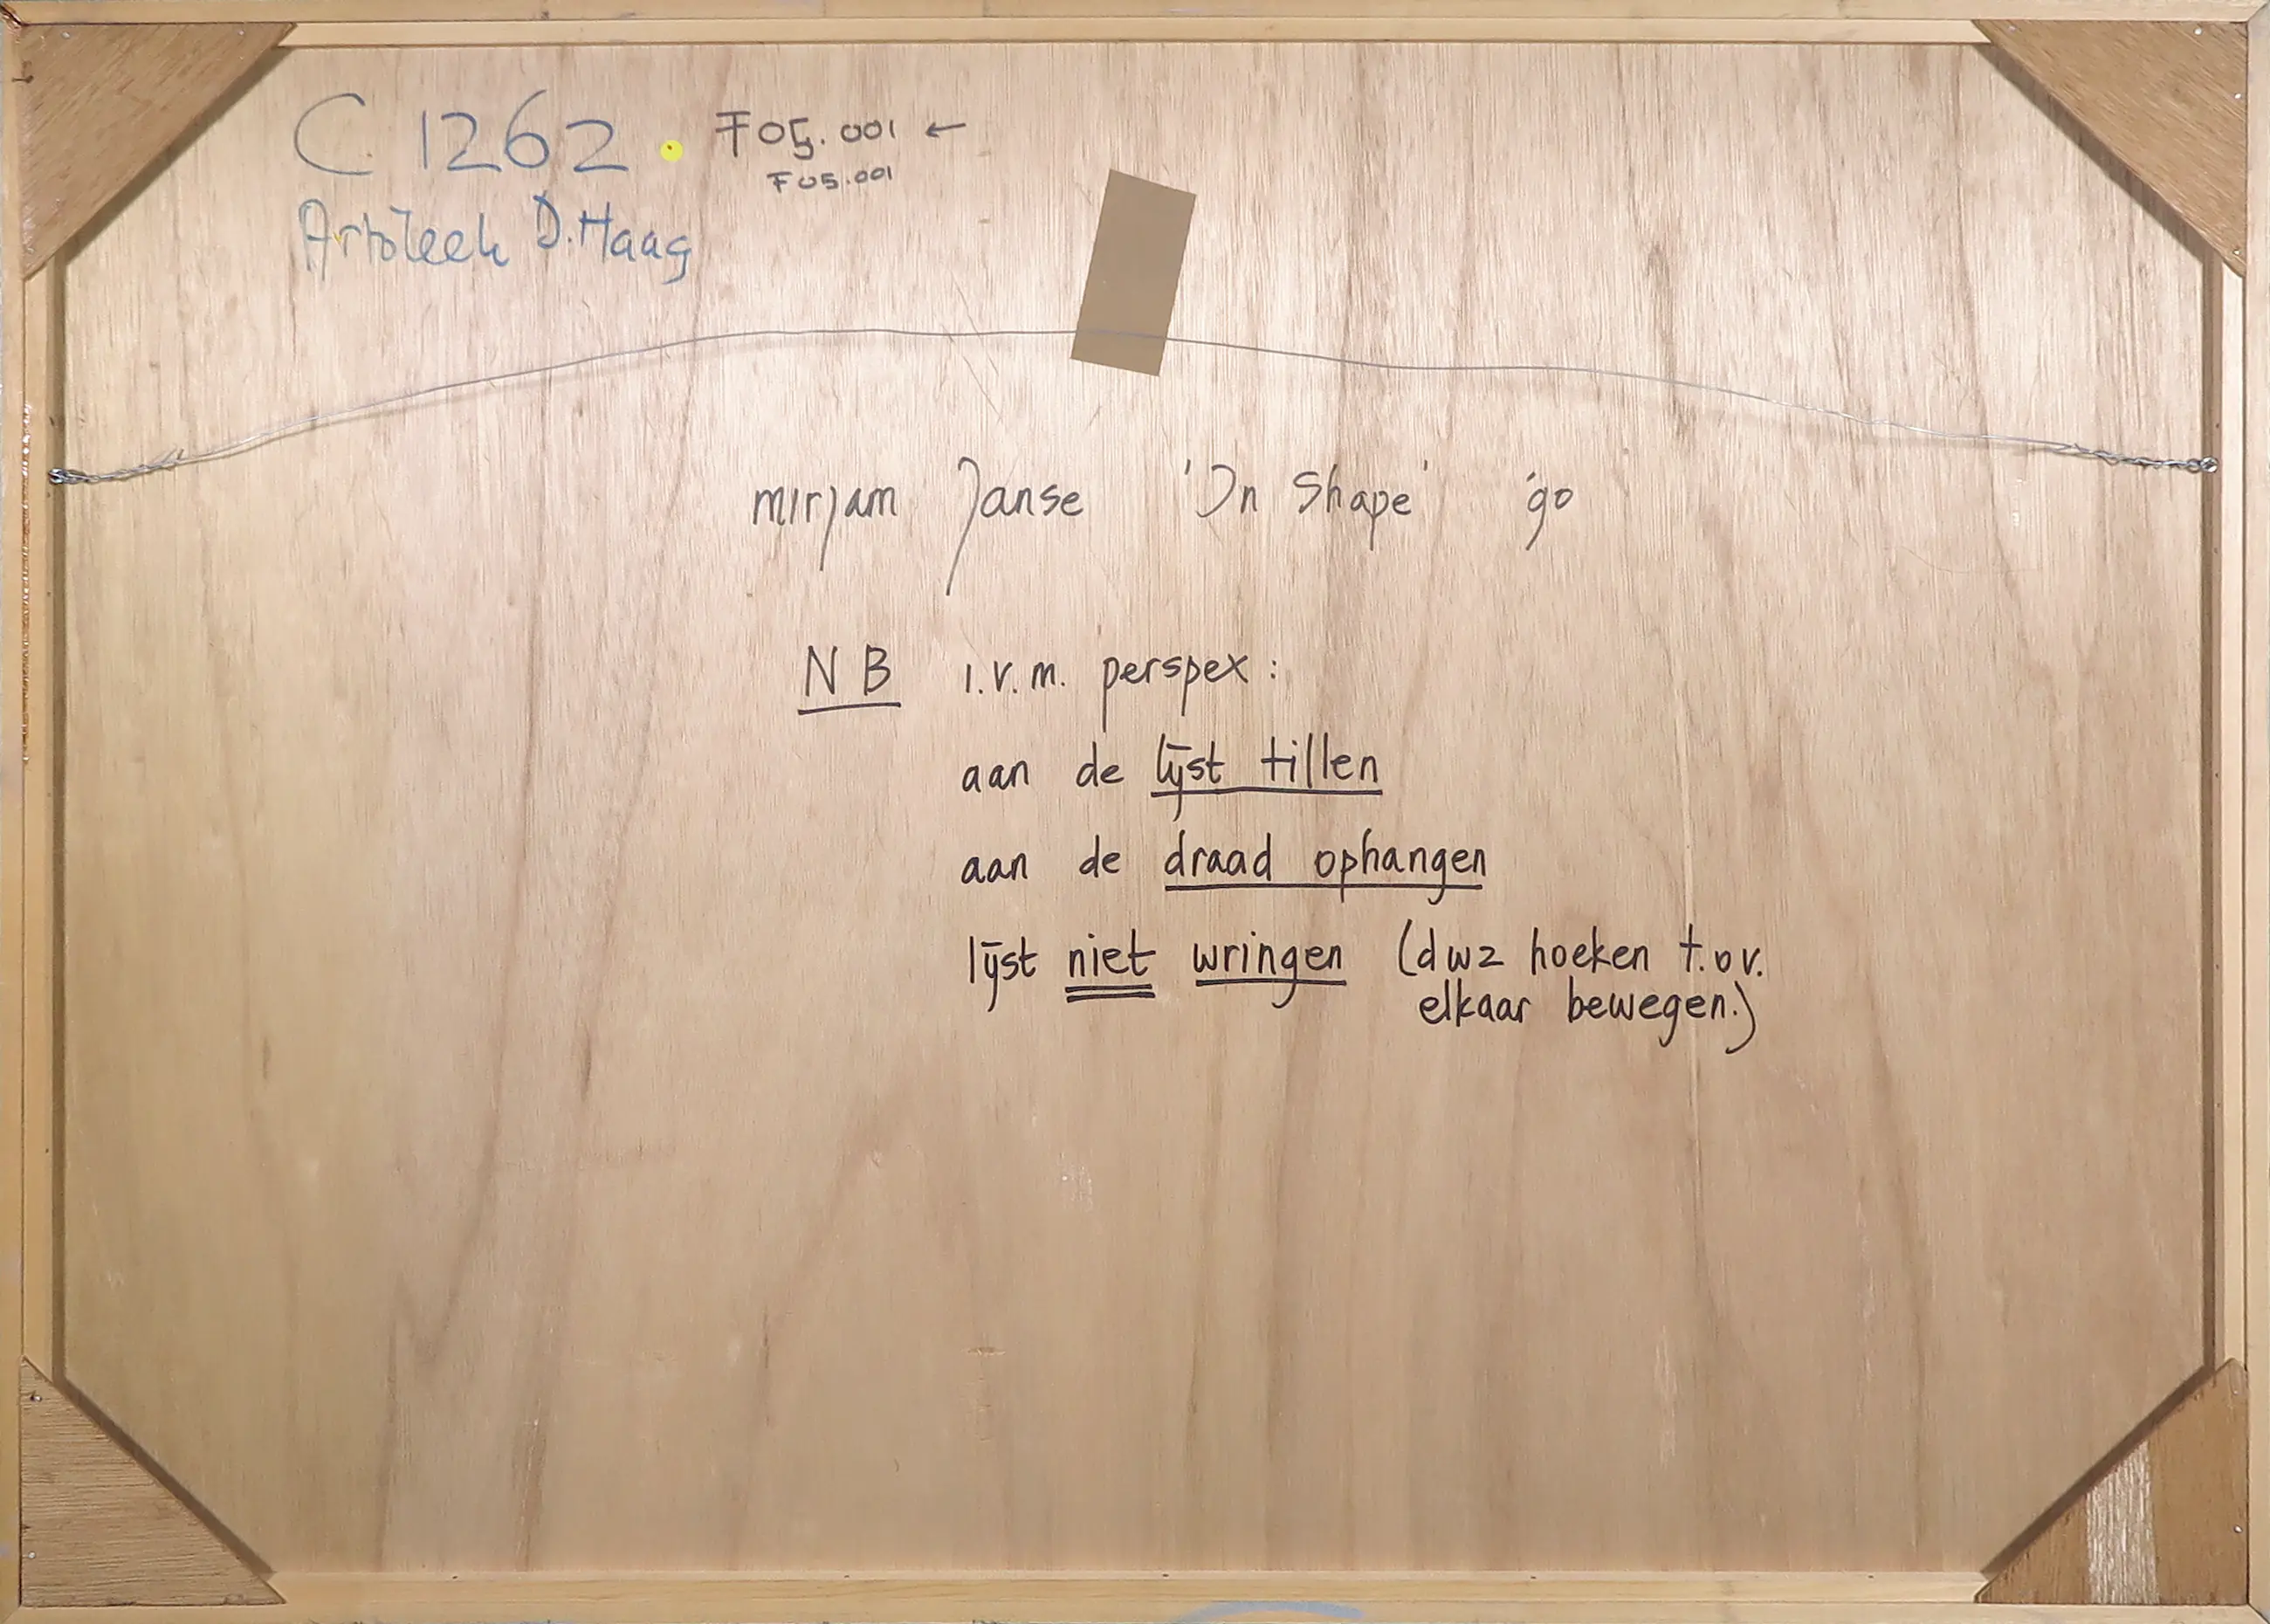 C 1262 . F05.001 ←
F05.001
Artoteek D.Haag
mirjam Janse 'In Shape' '90
NB i.v.m. perspex:
aan de lijst tillen
aan de draad ophangen
lijst niet wringen (dwz hoeken t.o.v.
elkaar bewegen.)